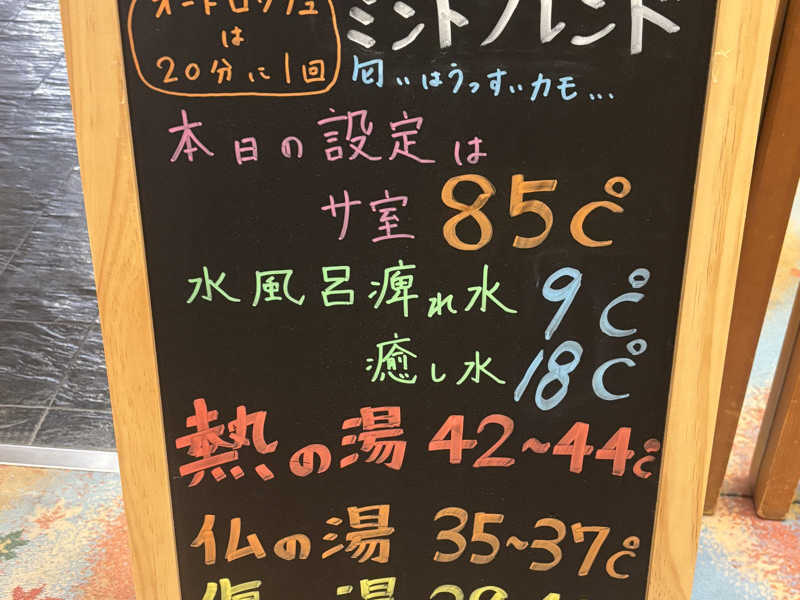 オートロウリュ
は
20分に1回
ミントブレンド
匂いはうっすぃカモ...
本日の設定は
サ室 85℃
水風呂痺れ水 9℃
癒し水 18℃
熱の湯 42~44℃
仏の湯 35~37℃